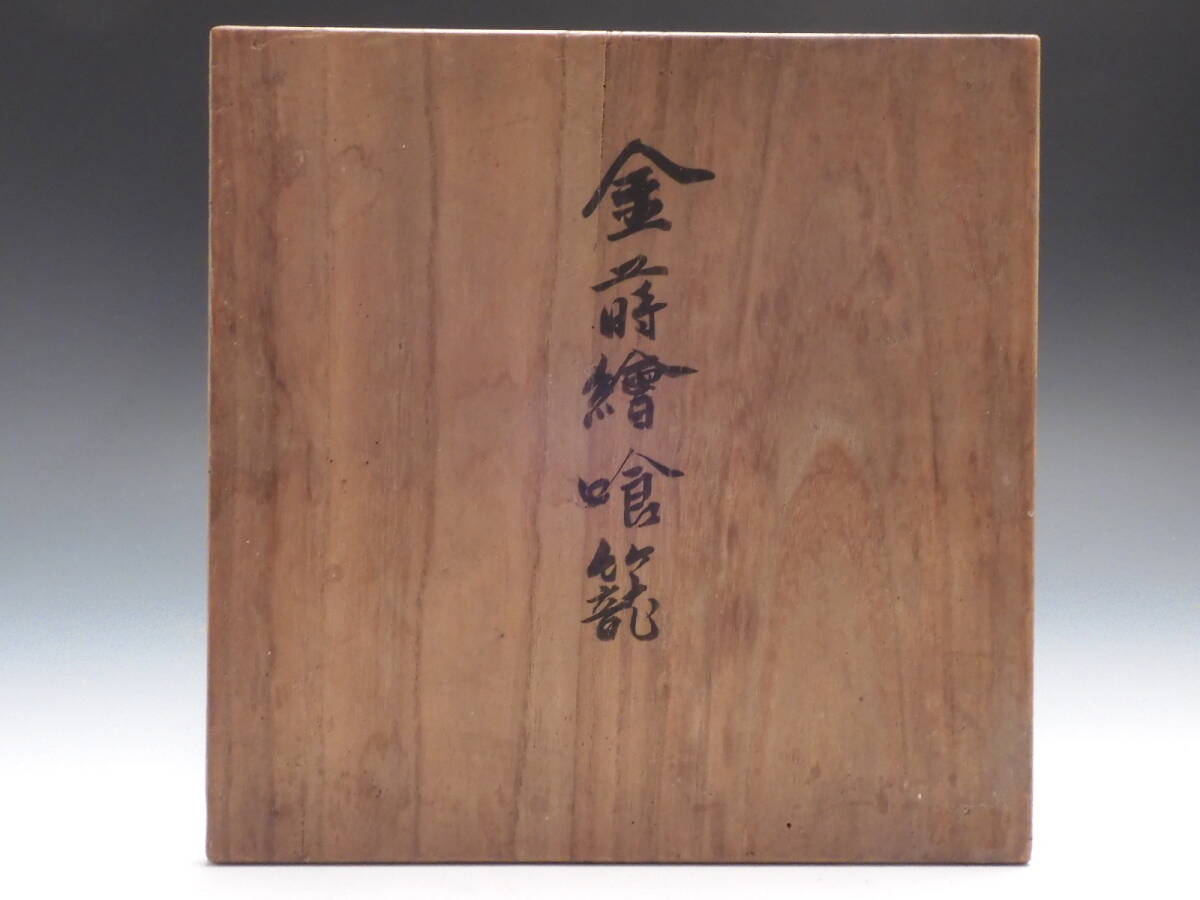 金蒔繪喰籠